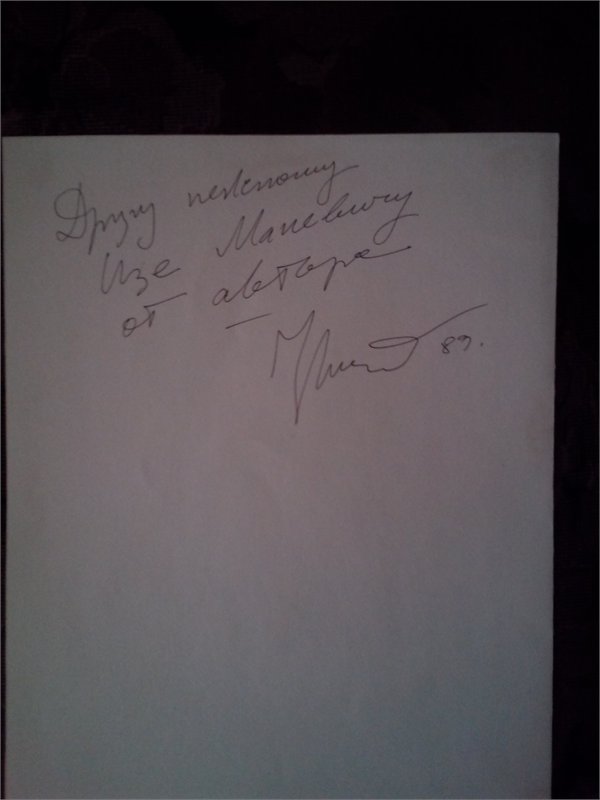 Другу нежному
Изе Маневичу
от автора
89.